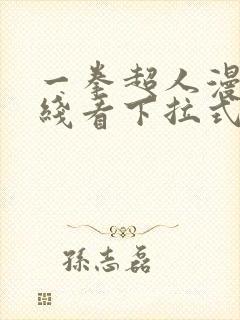 一拳超人漫
线看下拉式
孫志磊